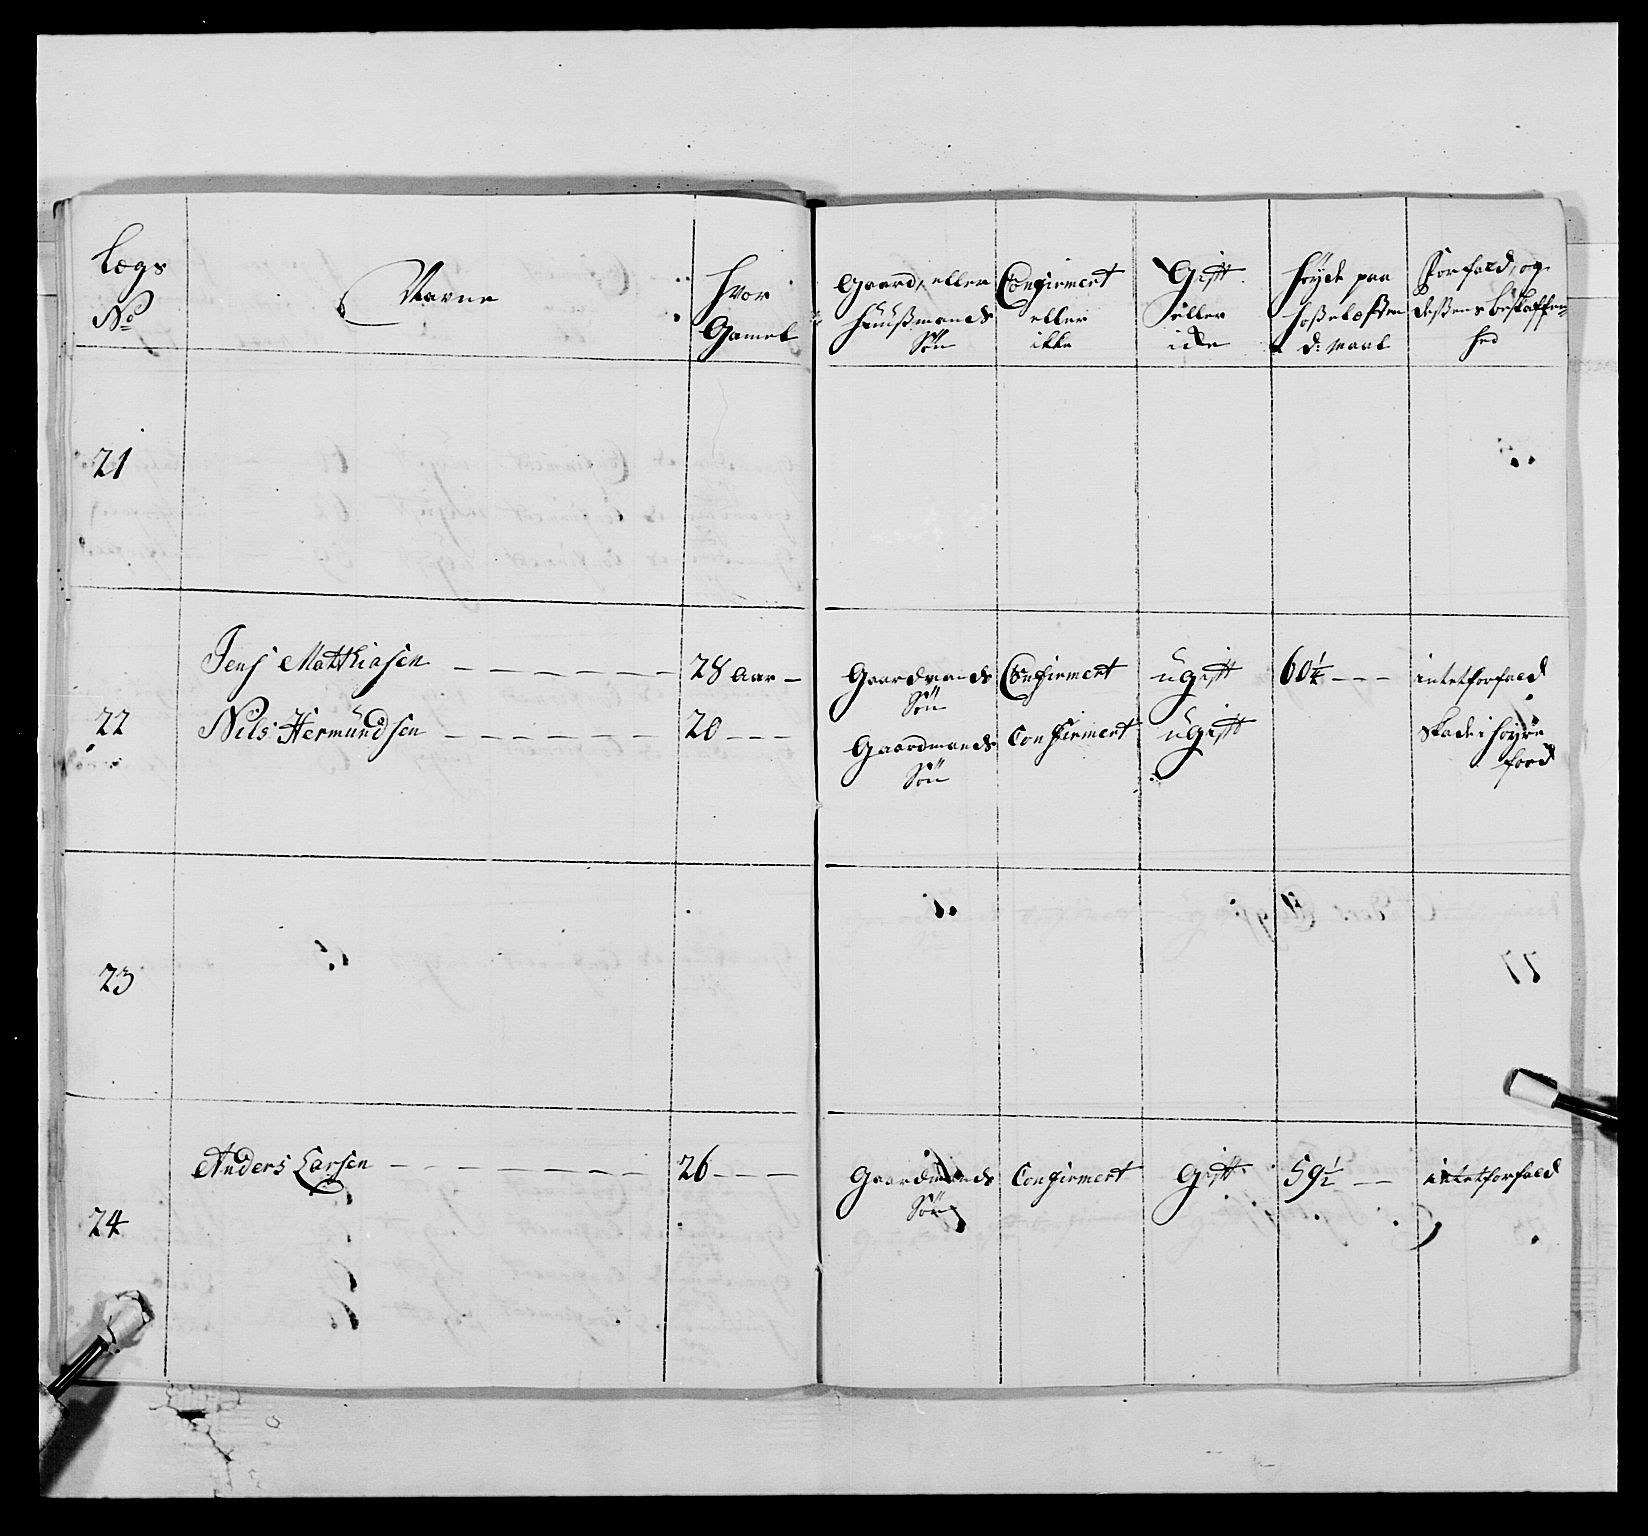 Lægs
No
Navne
Hvor
Gamel
Gaard, eller
Huusmands
Søn
Confirmert
eller
ikke
Gift
eller
icke
Høyde paa
Hosselæsten
d: Maal
Forfald, og
dessens beskaffen-
hed
21
22
Jens Mathiasen
28 Aar
Gaardmands
Søn
Confirmert
ugift
60 1/4
intet forfald
Nils Hermundsen
20
Gaardmands
Søn
Confirmert
ugift
Skade i høyre
food
23
24
Anders Larsen
26
Gaardmands
Søn
Confirmert
Gift
59 1/2
intet forfald